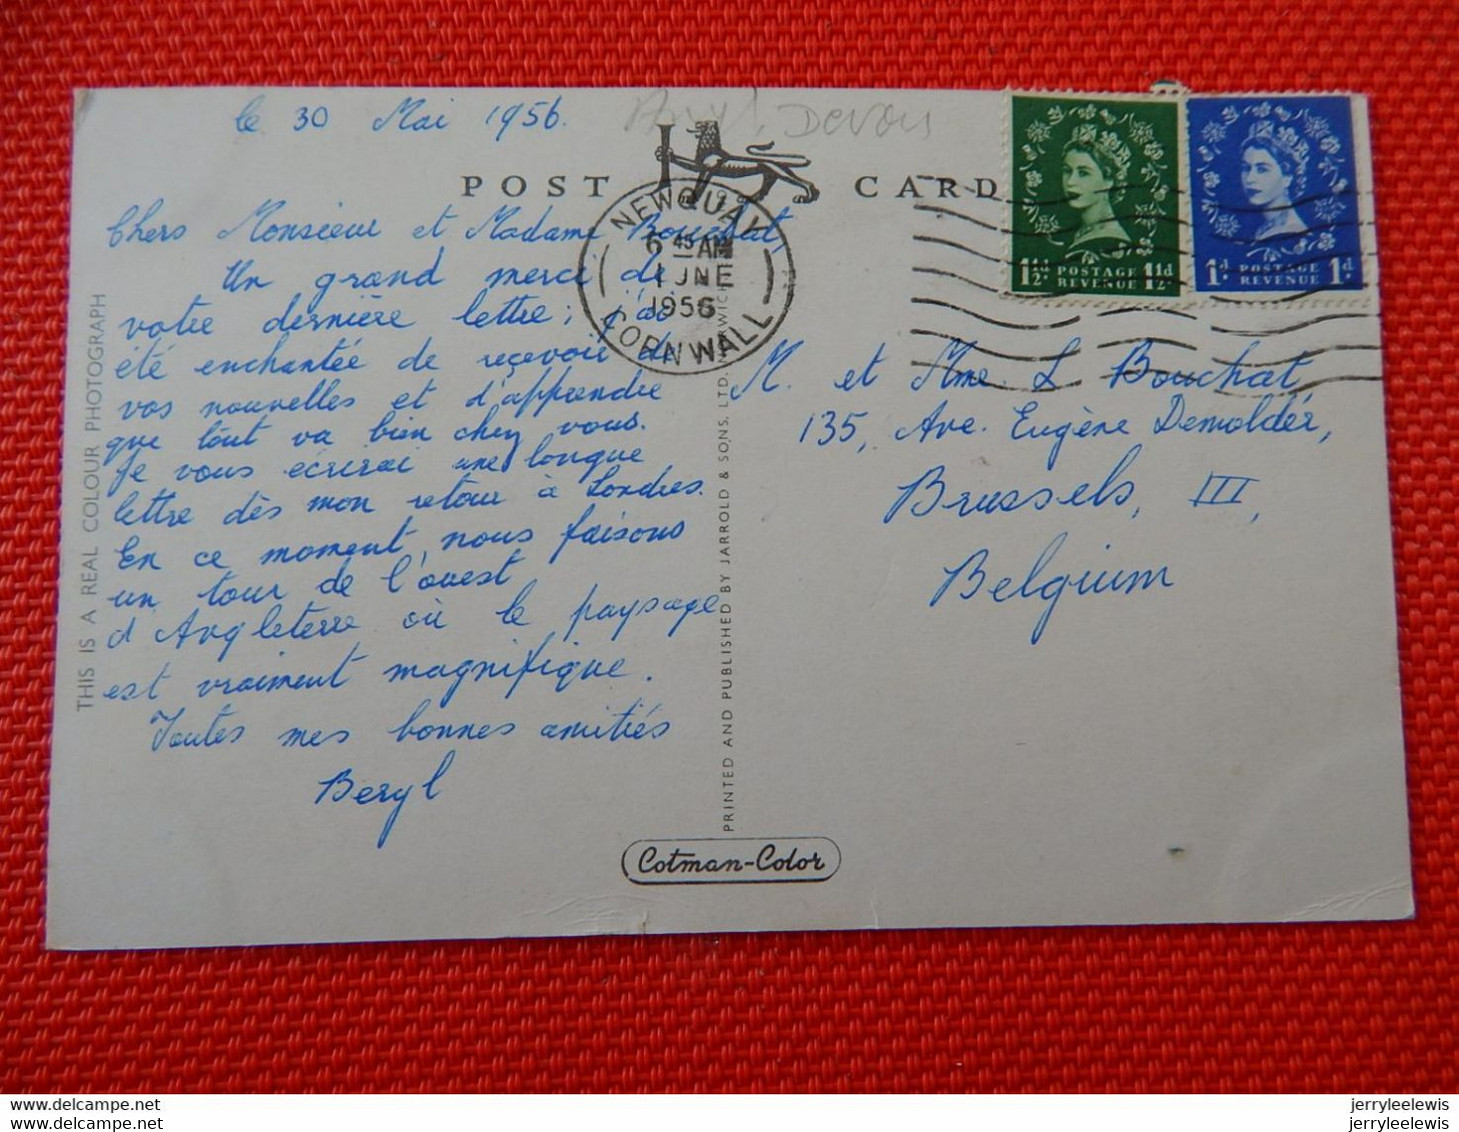 le 30 Mai 1956.
Devon
POST CARD
NEWQUAY
6 45 AM
1 JNE
1956
CORNWALL
1½d POSTAGE REVENUE 1½d
1d POSTAGE REVENUE 1d
Chers Monsieur et Madame Bouchat,
Un grand merci de
votre dernière lettre; j'ai
été enchantée de reçevoir de
vos nouvelles et d'apprendre
que tout va bien chez vous.
Je vous écrirai une longue
lettre dès mon retour à Londres.
En ce moment, nous faisons
un tour de l'ouest
d'Angleterre où le paysage
est vraiment magnifique.
Toutes mes bonnes amitiés
Beryl
M. et Mme. L Bouchat,
135, Ave. Eugène Demolder,
Brussels, III,
Belgium
THIS IS A REAL COLOUR PHOTOGRAPH
PRINTED AND PUBLISHED BY JARROLD & SONS, LTD. NORWICH
Cotman-Color
www.delcampe.net
www.delcampe.net
jerryleelewis
jerryleelewis